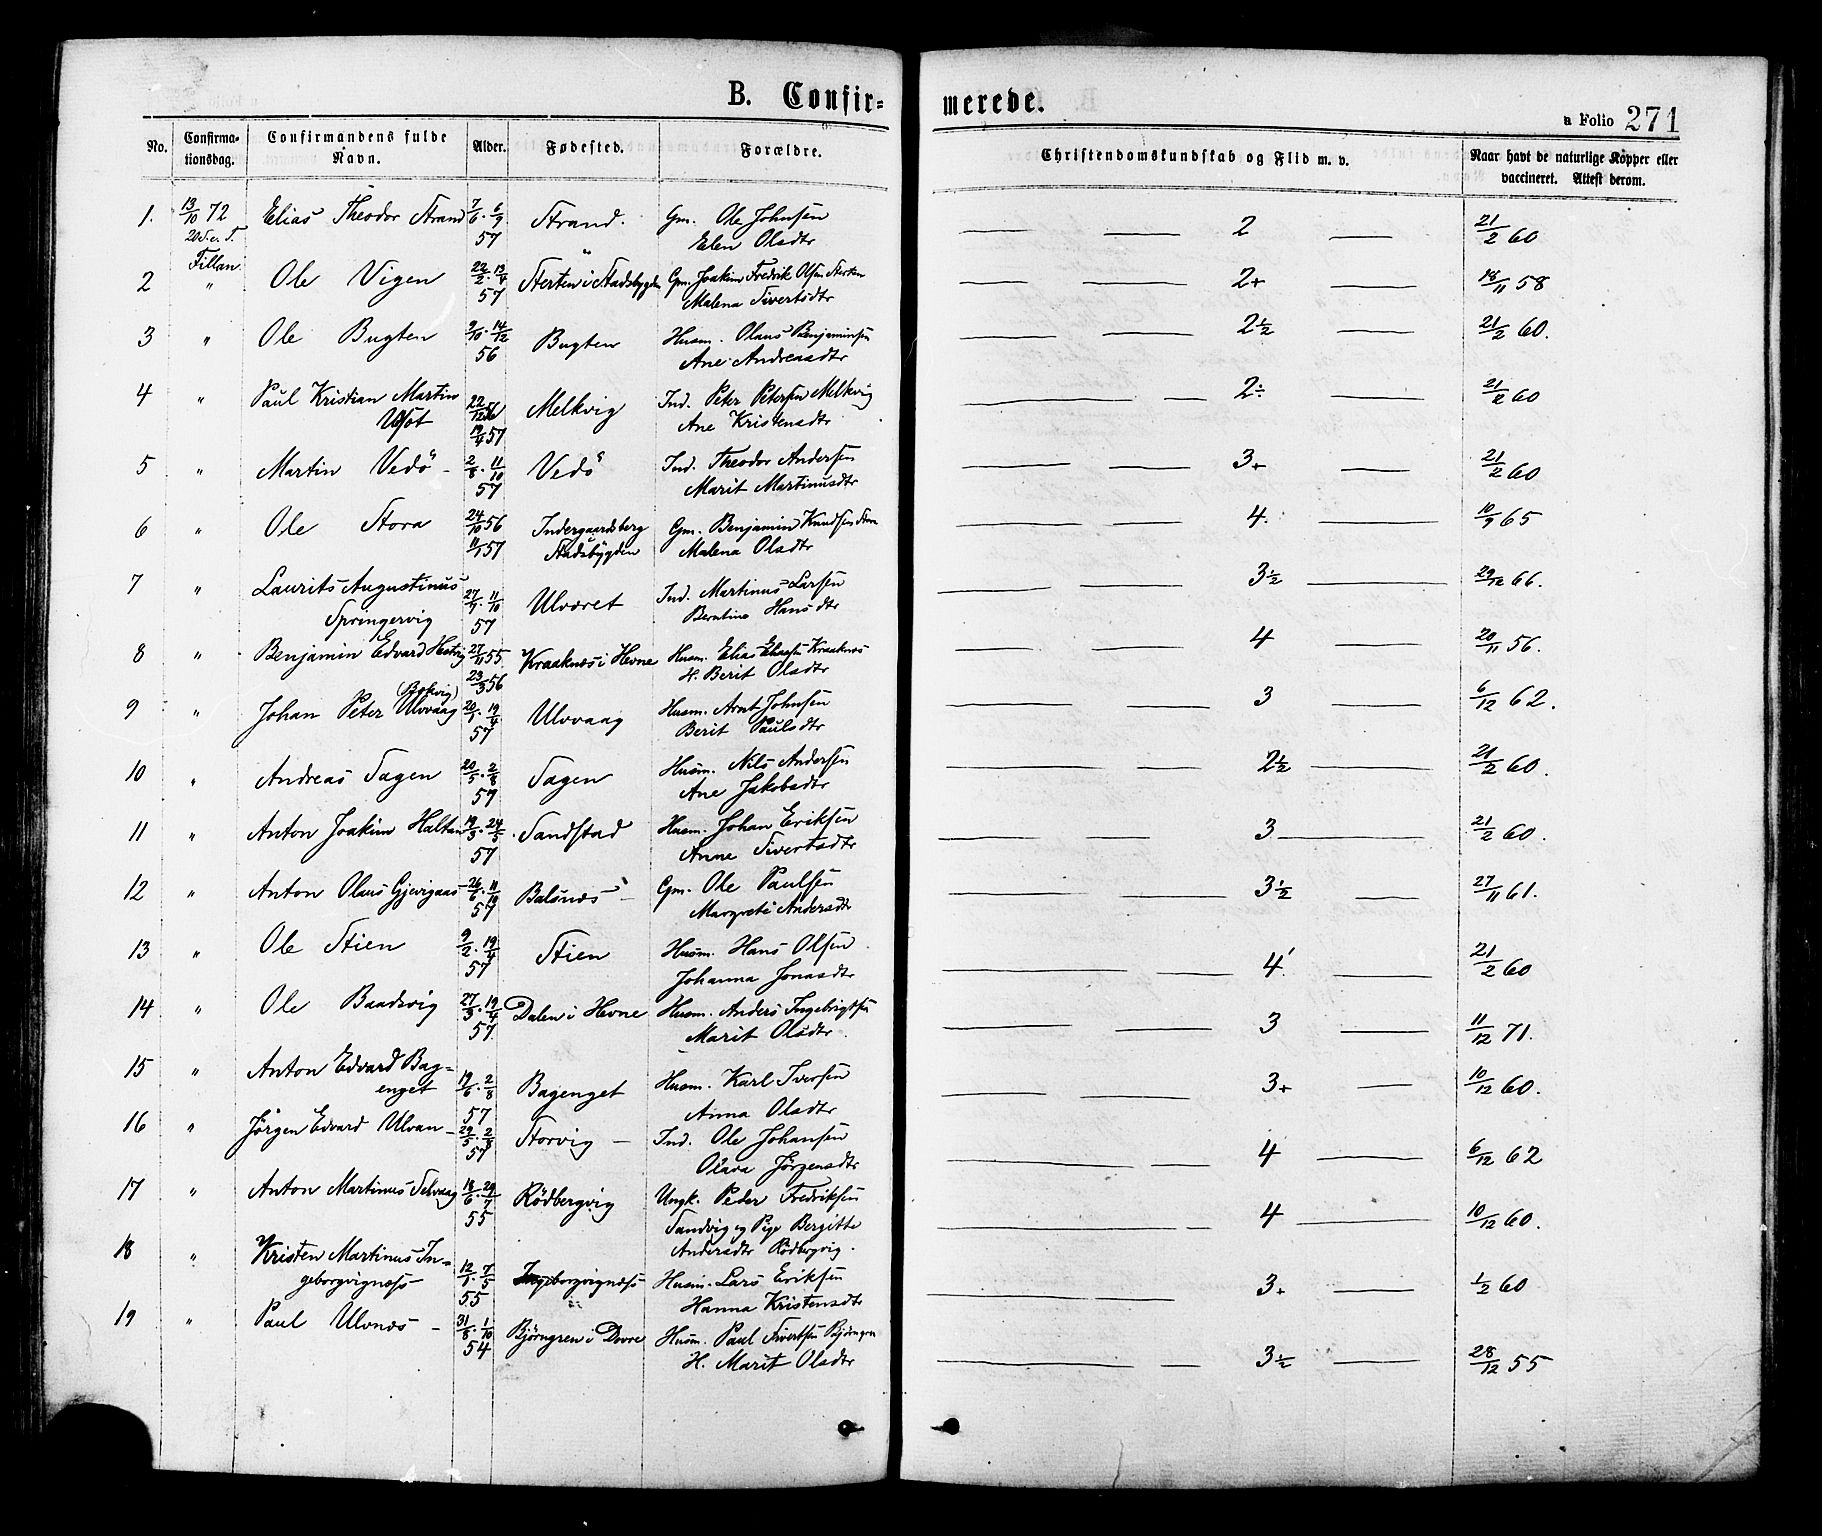 B. Confirmerede.
a Folio 271
No. Confirmationsdag. Confirmandens fulde Navn. Alder. Fødested. Forældre. Christendomskundskab og Flid m. v. Naar havt de naturlige Kopper eller vaccineret. Attest derom.
1. 13/10 72 Elias Theodor Strand 7/6 . 6/9 57 Strand. Gm. Ole Johnsen — — 2 — 21/2 60
20 S. e. T. Fillan Elen Olsdtr
2 " Ole Vigen 22/2 . 13/4 57 Sterten i Stadsbygden Gm. Joakim Fredrik Olsen Sterten — — 2+ — 18/11 58
Malena Sivertsdtr
3 " Ole Bugten 9/10 . 14/12 56 Bugten Husm. Olaus Benjaminsen — — 2½ — 21/2 60.
Ane Andreasdtr
4 " Paul Kristian Martin 22/12 56 Melkvig Ind. Peter Petersen Melkvig — — 2÷ — 21/2 60
19/4 57 Ane Kristensdtr
5 " Martin Vedö - 2/8 . 11/10 57 Vedö Ind. Theodor Andersen — — 3+ — 21/2 60
Marit Martinusdtr
6 " Ole Stora 24/10 56 Indergaardsberg Gm. Benjamin Knudsen Stora — — 4. — 10/9 65
11/1 57 Stadsbygden Malena Olsdtr
7 " Laurits Augustinus 27/7 . 11/10 57 Ulvöret Ind. Martinus Larsen — — 3½ — 29/12 66.
Springervig Berntine Hansdtr
8 " Benjamin Edvard Hestvig 27/11 55. Kraaknæs i Hevne Husm. Elias Eliasen Kraaknæs — — 4 — 20/11 56.
23/3 56 H. Berit Olsdtr
9 " Johan Peter Ulvvaag 20/1 . 19/4 57 Ulvvaag Husm. Arnt Johnsen — — 3 — 6/12 62.
Berit Paulsdtr
10 " Andreas Tagen 20/5 . 2/8 57 Tagen Husm. Nils Andersen — — 2½ — 21/2 60.
Ane Jakobsdtr
11 " Anton Joakim Haltan 19/3 . 24/5 57 Sandstad Husm. Johan Eriksen — — 3 — 21/2 60.
Anne Sivertsdtr
12 " Anton Olaus Gjevigaas 26/6 . 11/10 57 Balsnæs - Gm. Ole Paulsen — — 3½ — 27/11 61.
Margrete Andersdtr
13 " Ole Stien 9/2 . 19/4 57 Stien Husm. Hans Olsen — — 4. — 21/2 60
Johanna Jonasdtr
14 " Ole Baadsvig 27/3 . 19/4 57. Dalen i Hevne Husm. Anders Ingebrigtsen — — 3 — 11/12 71.
Marit Olsdtr.
15 " Anton Edvard Bag= 19/6 . 2/8 57 Bagenget Husm. Karl Iversen — — 3+ — 10/12 60.
enget Anna Olsdtr
16 " Jörgen Edvard Ulvan - 29/5 . 2/8 57 Storvig - Ind. Ole Johansen — — 4 — 6/12 62
Olava Jörgensdtr
17 " Anton Martinus Selvaag 18/6 . 29/7 55 Rödbergvig Ungk. Peder Fredriksen — — 4 — 10/12 60.
Sandvig og Pige Bergitte
Andersdtr Rödbergvig.
18 " Kristen Martinus In= 12/1 . 7/5 55 Ingeborgvignæss Husm. Lars Eriksen — — 3+ — 1/2 60
geborgvignæss Hanna Kristensdtr
19 " Paul Ulvnæs - 31/8 . 1/10 54 Björngren i Dovre Husm. Paul Sivertsen Björngren — — 3½ — 28/12 55
H. Marit Olsdtr